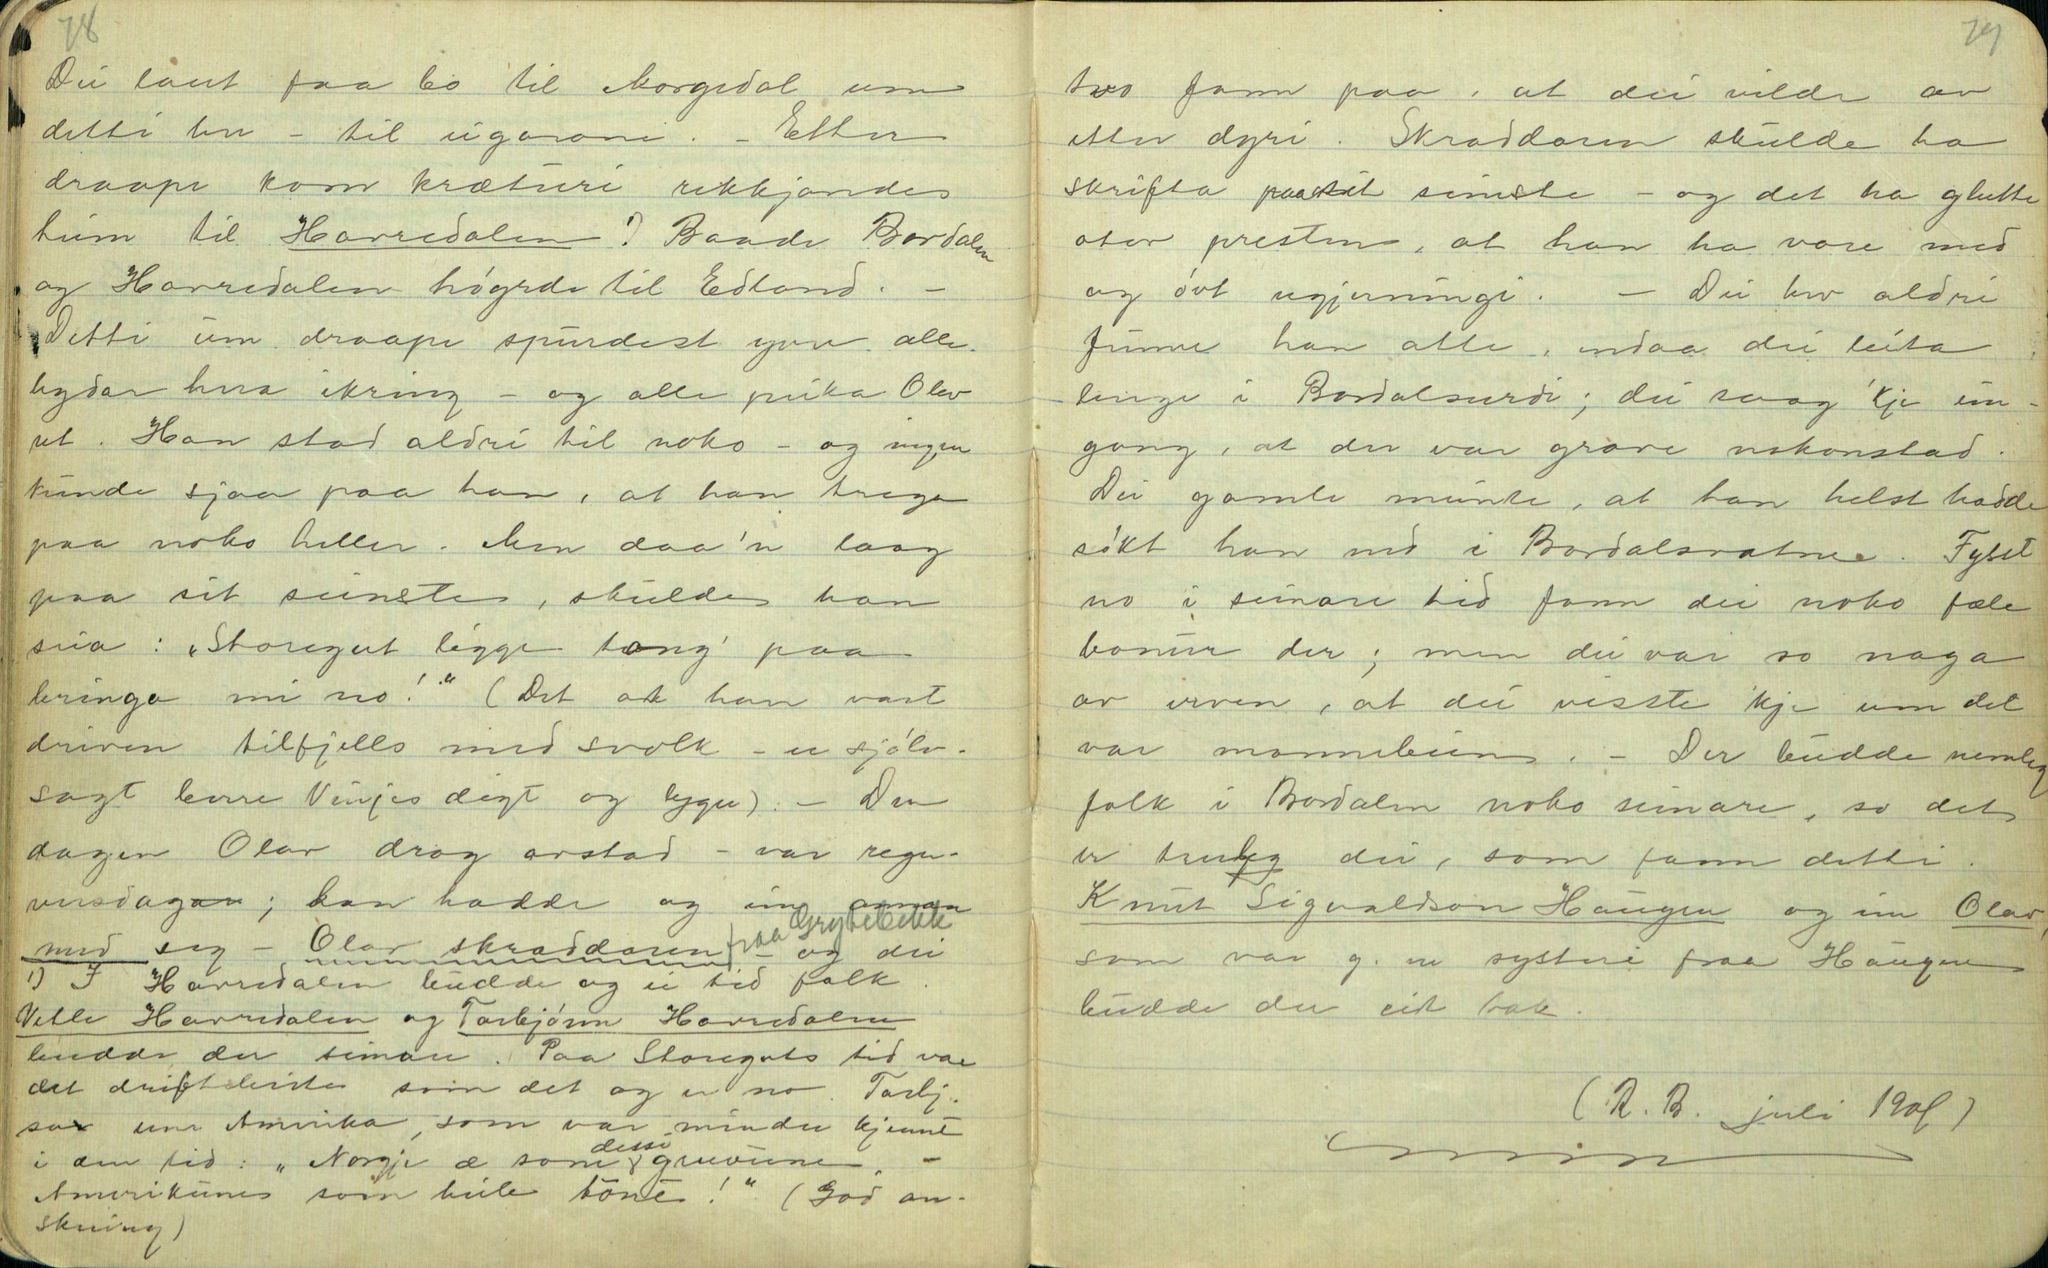 78
Dei laut faa bo til Morgedal um
detti her – til ugaarane. – Etter
draape kom kræturi rekkjandes
heim til Havredalen 1) Baade Bordalen
og Havredalen høgrde til Edland. –
Detti um draape spurdest yver alle
bygdar her ikring – og alle peika Olav
ut. Han stod aldri til noko – og ingen
kunde sjaa paa han, at han trega
paa noko heller. Men daa'n laag
paa sit seinste, skulde han
seia: „Storegut ligge tong' paa
bringa mi no!" (Det at han vart
driven tilfjells med svolk – er sjølv-
sagt berre Vinjes digt og lygn). – Den
dagen Olav drog avstad – var
; han hadde og ein annan
med seg – Olav skraddaren fraa Grytebekk – og dei
1) I Havredalen budde og ei tid folk.
Vetle Havredalen og Torbjørn Havredalen
budde der seinare. Paa Storeguts tid var
det driftebeite som det og er no. Torbj.
sa um Amerika, som var mindre kjent
i den tid: „Norgje æ som desse gruvune, –
Amerikunes som heile tone!" (God an-
skuing)
79
two fann paa, at dei vilde av
etter dyri. Skraddaren skulde ha
skrifta paa sit seinste – og det ha glutte
utor presten, at han ha vore med
og øvt ugjerningi. – Dei hev aldri
funne han atte, endaa dei leita
lenge i Bordalsurdi; dei saag 'kje ein-
gong, at der var grave nokonstad.
Dei gamle meinte, at han helst hadde
søkt han ned i Bordalsvatne. Fyst
no i seinare tid fann dei noko fæle
bonur der; men dei var so naga
av erven, at dei visste 'kje um det
var mannebein. – Der budde nemleg
folk i Bordalen noko seinare, so det
er truleg dei, som fann detti.
Knut Sigvaldson Haugen og ein Olav,
som var g. m systeri fraa Haugen
budde der eit bak.
(R. B. juli 1909)